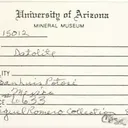 University of Arizona
MINERAL MUSEUM
15012
Datolite
ITY
San Luis Potosi
Mexico
6633
iguel Romero Collection